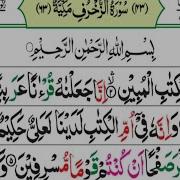 (٤٣) سُوْرَةُ الزُّخْرُفِ مَكِّيَّةٌ (٦٣)
بِسْمِ اللهِ الرَّحْمٰنِ الرَّحِيْمِ
الْكِتٰبِ الْمُبِيْنِ اِنَّا جَعَلْنٰهُ قُرْءٰنًا عَرَبِيًّا
وَاِنَّهٗ فِيْۤ اُمِّ الْكِتٰبِ لَدَيْنَا لَعَلِيٌّ حَكِيْمٌ
صَفْحًا اَنْ كُنْتُمْ قَوْمًا مُّسْرِفِيْنَ